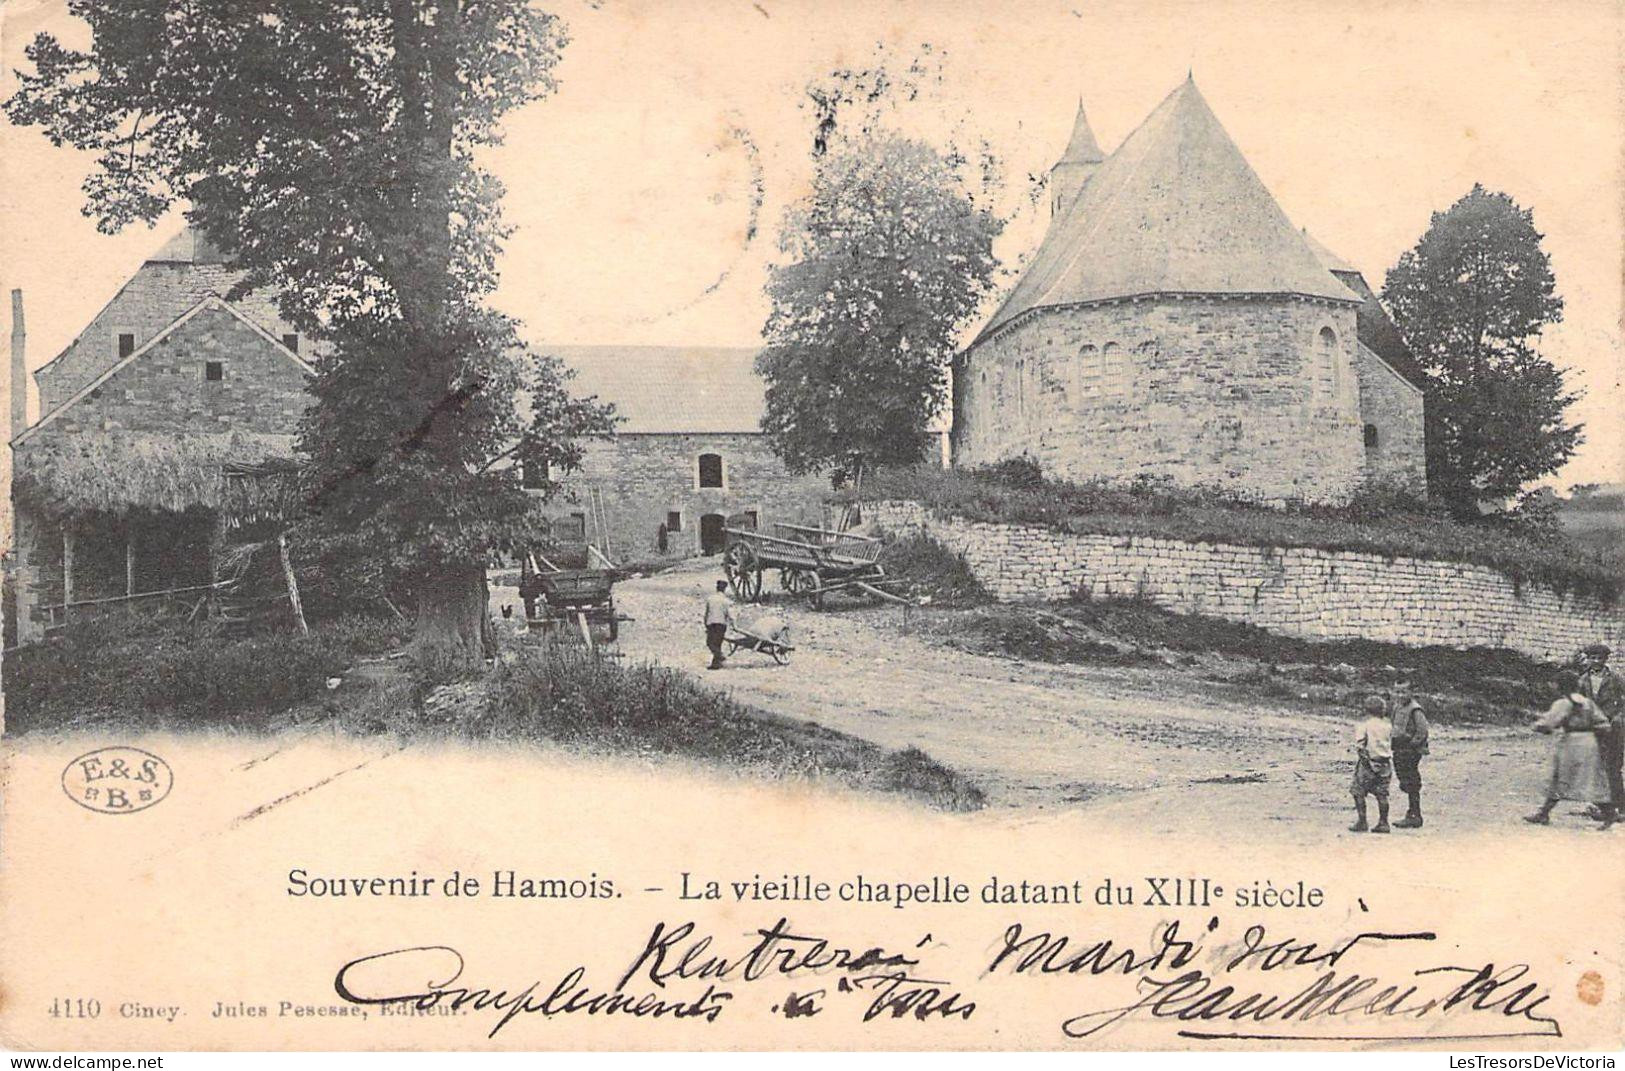 E. & S.
B.
Souvenir de Hamois. – La vieille chapelle datant du XIIIe siècle
Rentrerai Mardi soir
Compliments à Tous
4110 Ciney. Jules Pesesse, Editeur.
LesTresorsDeVictoria